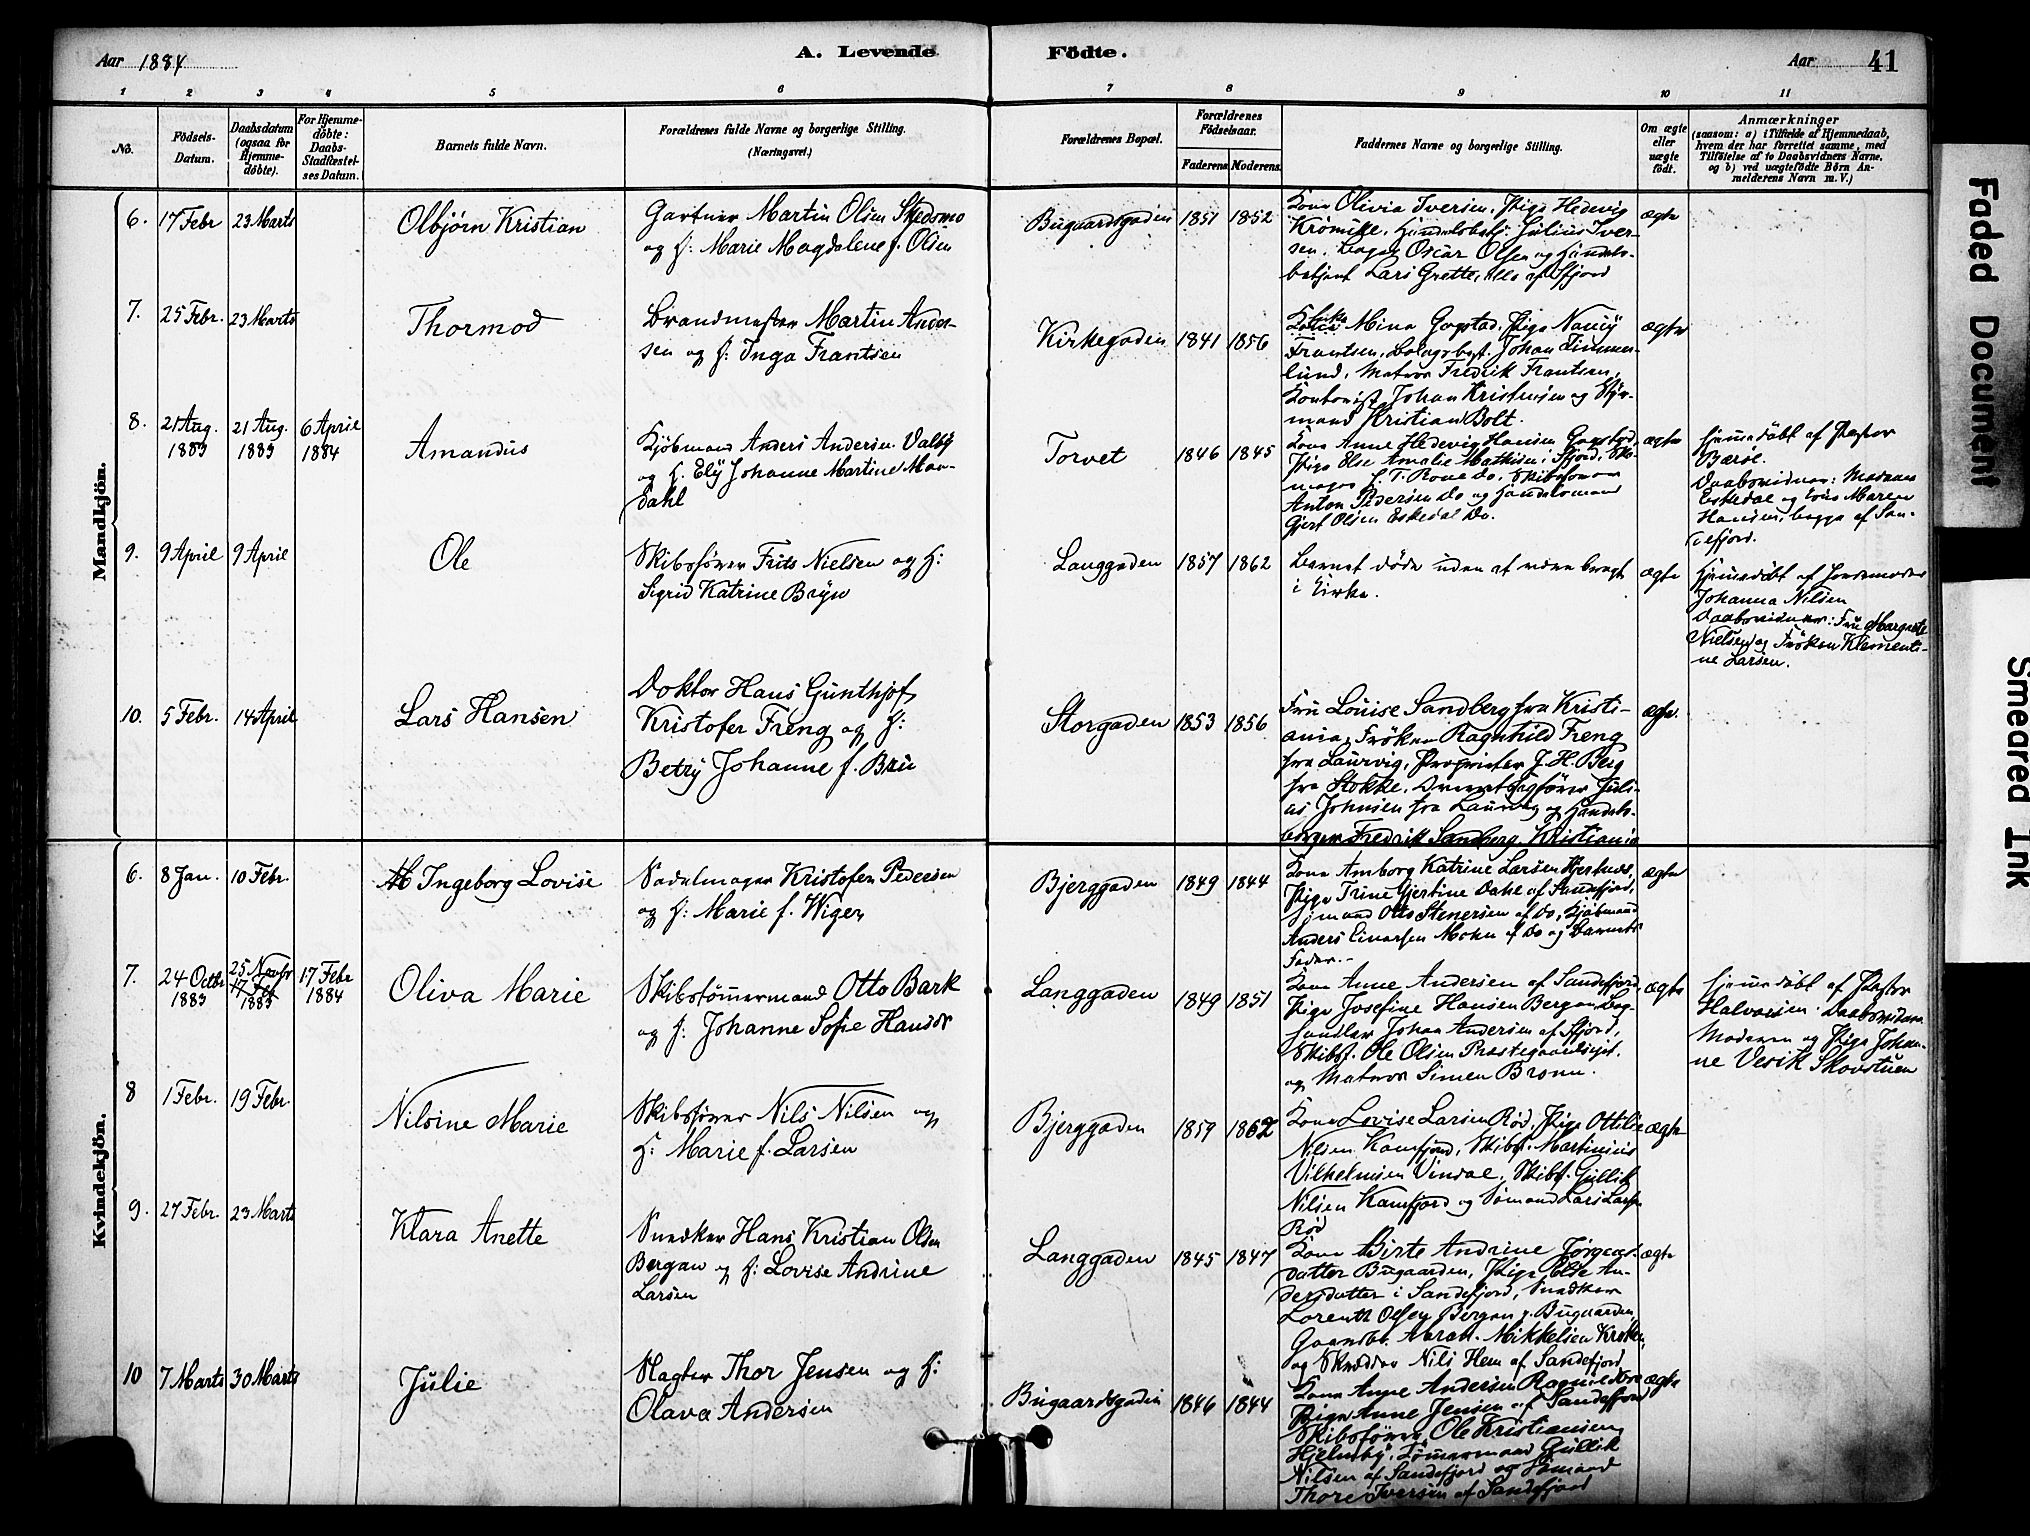 Aar 1884
A. Levende Födte.
Aar 41
1 2 3 4 5 6 7 8 9 10 11
No.
Födsels-Datum.
Daabsdatum (ogsaa for Hjemme-döbte).
For Hjemme-döbte: Daabs-Stadfæstel-ses Datum.
Barnets fulde Navn.
Forældrenes fulde Navne og borgerlige Stilling.
(Næringsvei.)
Forældrenes Bopæl.
Forældrenes Födselsaar.
Faderens Moderens.
Faddernes Navne og borgerlige Stilling.
Om ægte eller uægte födt.
Anmærkninger
(saasom: a) i Tilfælde af Hjemmedaab,
hvem der har forrettet samme, med
Tilföielse af to Daabsvidners Navne,
og b) ved uægtefödte Börn An-
melderens Navn m. V.)
Mandkjön.
6. 17 Febr 23 Marts
Olbjørn Kristian
Gartner Martin Olsen Skedsmo
og H: Marie Magdalene f. Olsen
Bugaardsgaden 1851 1852
Kone Olivia Iversen, Pige Hedevig
Julius Iver-
sen, Oscar Olsen og Handels-
betjent Lars Grette, alle af Sfjord
ægte
7. 25 Febr. 23 Marts
Thormod
Brandmester Martin Ander-
sen og H: Inga Frantsen
Kirkegaden 1841 1856
Mina Gogstad, Pige Nancy
Frantsen, Johan Timmer-
lund, Matros Fredrik Frantsen,
Kontorist Johan Kristensen og Styr-
mand Kristian Bolt.
ægte
8. 21 Aug. 1883 21 Aug. 1883 6 April 1884
Amandus
Kjøbmand Anders Andersen Valby
og H. Elly Johanne Martine Mov-
dahl
Torvet 1846 1845
Kone Anne Hedevig Hansen Gogstad,
Pige Else Amalie Mathisen i Sfjord, Sko-
mager L. T. Rove Do, Skibstømm
Anton Pedersen Do og Handelsmand
Gjert Olsen Eskedal Do.
ægte
Hjemmedøbt af Pastor
Bærøe.
Daabsvidner: Madame
Eskedal og Maren
Hansen, begge af San-
defjord.
9. 9 April 9 April
Ole
Skibsfører Frits Nielsen og H:
Sigrid Katrine Bryn
Langgaden 1857 1862
Barnet døde uden at være bragt
i Kirke.
ægte
Hjemmedøbt af Jordemoder
Johanna Nilsen
Daabsvidner: Fru Margrete
Nielsen og Frøken Klementi-
ne Larsen.
10. 5 Febr. 14 April
Lars Hansen
Doktor Hans Gunthjof
Kristofer Freng og H:
Betzy Johanne f. Bru
Storgaden 1853 1856
Fru Louise Sandberg fra Kristi-
ania, Frøken Ragnhild Freng
fra Laurvig, Proprietær J. H. Berg
fra Stokke, Overretssagfører Juli-
us Johnsen fra Laurvig og Handels-
borger Fredrik Sandberg, Kristiania
ægte.
Kvindekjön.
6. 8 Jan. 10 Febr.
Ingeborg Lovise
Sadelmager Kristofer Pedersen
og H: Marie f. Wiger
Bjerggaden 1849 1844
Kone Amborg Katrine Larsen Hjertnes,
Pige Trine Gjertine Dahl af Sandefjord,
Sømand Otto Stenersen af Do, Kjøbmand
Anders Einarsen Mohn af Do og Barnets
Fader. -
ægte
7. 24 Octbr 1883 25 Novbr 1883 17 Febr 1884
Oliva Marie
Skibstømmermand Otto Bark
og H: Johanne Sofie Hansdr
Langgaden 1849 1851
Kone Anne Andersen af Sandefjord,
Pige Josefine Hansen Bergan,
Johan Andersen af Sfjord,
Skibsf. Ole Olsen Præstegaardsejet.
og Matros Simen Bronn.
ægte
Hjemmedøbt af Pastor
Halvorsen. Daabsvidner
Moderen og Pige Johan-
ne Verik Skovstuen
8 1 Febr. 19 Febr.
Nilsine Marie
Skibsfører Nils Nilsen og
H: Marie f. Larsen
Bjerggaden 1859 1862
Kone Lovise Larsen Rød, Pige Ottilie
Nilsen Kamfjord, Skibsf. Martinius
Vilhelmsen Vindal, Skibsf. Gullik
Nilsen Kamfjord og Sømand Lars Larsen
Rød
ægte
9. 27 Febr. 23 Marts
Klara Anette
Snedker Hans Kristian Olsen
Bergan og H: Lovise Andrine
Larsen
Langgaden 1845 1847
Kone Birte Andrine Jørgens-
datter Bugaarden, Pige Else An-
dersdatter i Sandefjord, Snedker
Lorentz Olsen Bergan p. Bugaarden,
Gaardbr. Abrah. Mikkelsen Krokken,
og Skrædder Nils Hem af Sandefjord
ægte
10 7 Marts 30 Marts
Julie
Slagter Thor Jensen og H:
Olava Andersen
Bugaardsgaden 1846 1844
Kone Anne Andersen Ragnildsrø
Pige Anne Jensen af Sandefjord
Skibsfører Ole Kristiansen
Hjelmby, Tømmermand Gullik
Nilsen af Sandefjord og Sømand
Thore Iversen af Sandefjord
ægte
Faded Document
Smeared Ink